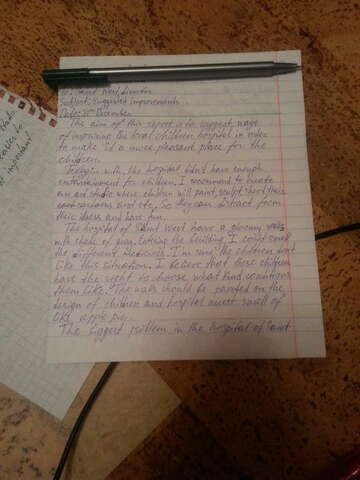 To: Saint West, director
Subject: Suggested improvements
Date: 3rd December
The aim of this report is to suggest ways
of improving the local children hospital in order
to make it a more pleasant place for the
children.
To begin with, the hospital didn't have enough
entertainment for children. I recommend to create
an art studio where children will paint, sculpt their
and etc. So they can distract from
their illness and have fun.
The hospital of Saint West have a gloomy walls
with shade of gray. Entering the building, I could smell
the different medicines. I'm sure the children don't
like this situation. I believe that these children
have the right to choose what kind conditions
them like. The walls should be painted on the
design of children and hospital must smell of
like apple pie.
The biggest problem in the hospital of Saint
important